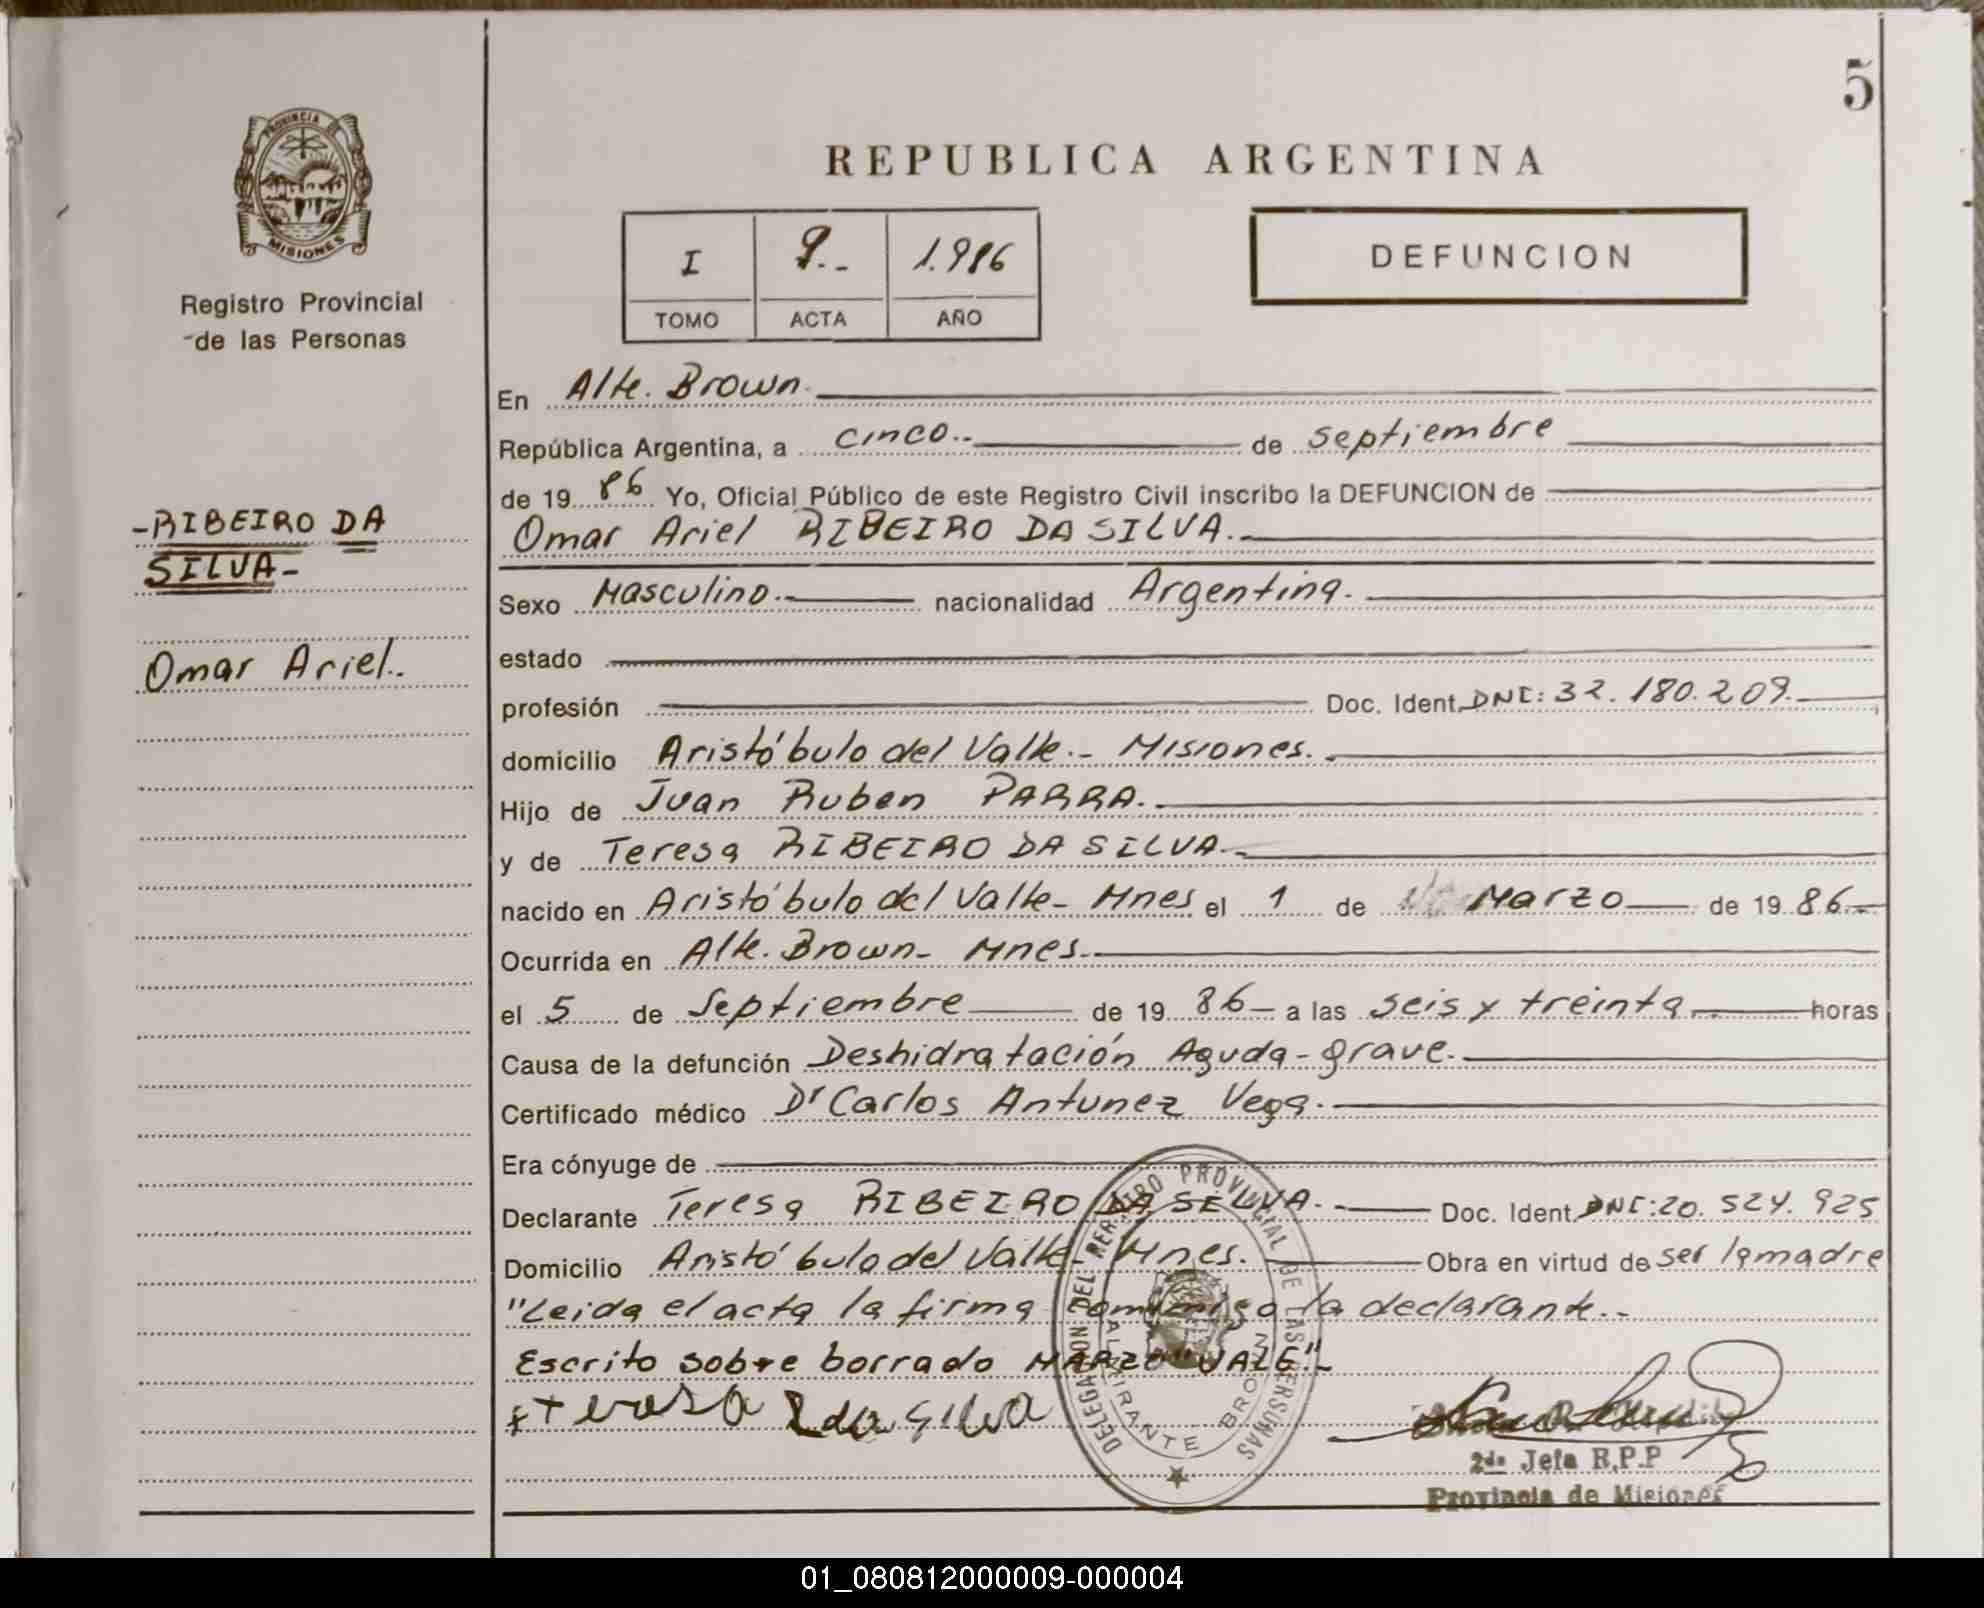 5
PROVINCIA DE
MISIONES
Registro Provincial
de las Personas
REPUBLICA ARGENTINA
I 9.- 1.986
TOMO ACTA AÑO
DEFUNCION
-RIBEIRO DA
SILVA-
Omar Ariel.
En Alte. Brown.
República Argentina, a cinco.. de septiembre
de 19 86 Yo, Oficial Público de este Registro Civil inscribo la DEFUNCION de
Omar Ariel RIBEIRO DA SILVA.
Sexo Masculino. nacionalidad Argentina.
estado
profesión Doc. Ident. DNI: 32.180.209.
domicilio Aristóbulo del Valle.- Misiones.
Hijo de Juan Ruben PARRA.
y de Teresa RIBEIRO DA SILVA.
nacido en Aristóbulo del Valle- Mnes el 1 de Marzo de 19 86.-
Ocurrida en Alte. Brown- Mnes.
el 5 de Septiembre de 19 86 - a las seis y treinta horas
Causa de la defunción Deshidratación Aguda-grave.
Certificado médico Dr Carlos Antunez Vega.
Era cónyuge de
Declarante Teresa RIBEIRO DA SILVA.- Doc. Ident. DNI:20.524.925
Domicilio Aristóbulo del Valle- Mnes. Obra en virtud de ser la madre
"Leida el acta la firma conmigo la declarante.-
Escrito sobre borrado MARZO "VALE".-
teresa R da Silva
DELEGACION DEL REGISTRO PROVINCIAL DE LAS PERSONAS
ALMIRANTE BROWN
2da Jefa R.P.P
Provincia de Misiones
01_080812000009-000004